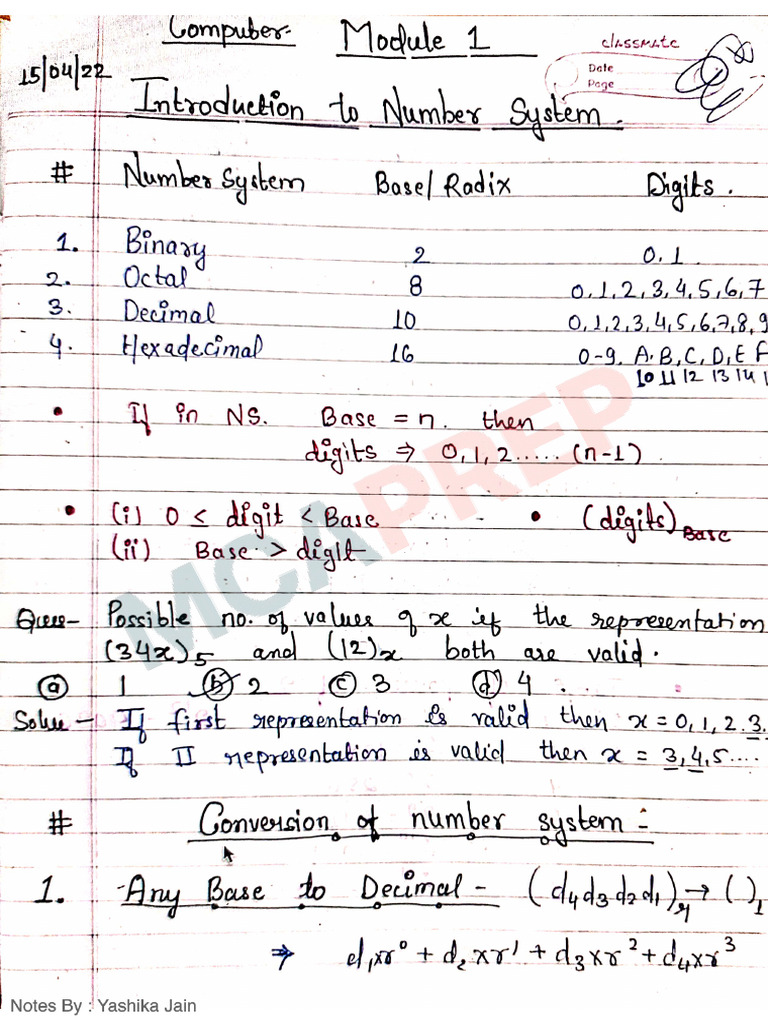 Computer- Module 1
classmate
Date
Page
15/04/22
Introduction to Number System.
# Number System Base/Radix Digits.
1. Binary 2 0, 1.
2. Octal 8 0,1,2,3,4,5,6,7
3. Decimal 10 0,1,2,3,4,5,6,7,8,9
4. Hexadecimal 16 0-9, A.B,C,D,E F
10 11 12 13 14 1
• If in NS. Base = n. then
digits ⇒ 0,1,2..... (n-1)
• (i) 0 ≤ digit < Base • (digits)Base
(ii) Base > digit
MCAPREP
Ques- Possible no. of values of x if the representation
(34x)5 and (12)x both are valid.
(a) 1 (b) 2 (c) 3 (d) 4
Solu- If first representation is valid then x = 0,1,2.3.
If II representation is valid then x = 3,4,5....
# Conversion of number system:-
1. Any Base to Decimal- (d4d3d2d1)r → ( )1
⇒ d1xr⁰ + d2xr¹ + d3xr² + d4xr³
Notes By : Yashika Jain